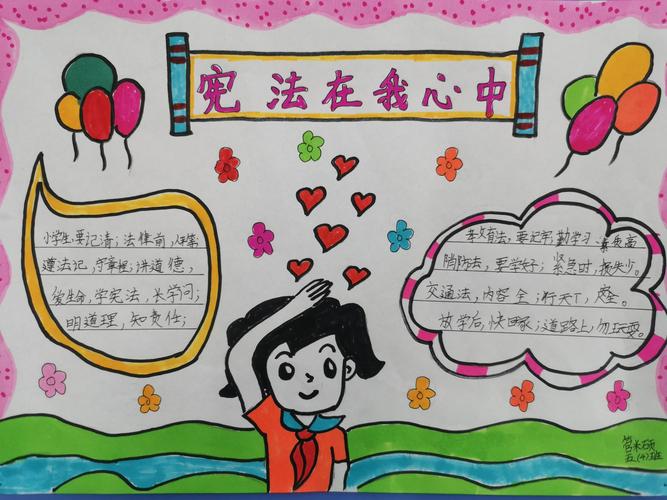 宪法在我心中
小学生,要记清;法律前,
遵法记,守章程;讲道德,
爱生命,学宪法,长学问;
明道理,知责任;
教育法,要记牢,勤学习,素质高
消防法,要学好;紧急时,损失少。
交通法,内容全;行天下,安全。
放学后,快回家;道路上,勿玩耍。
五(4)班